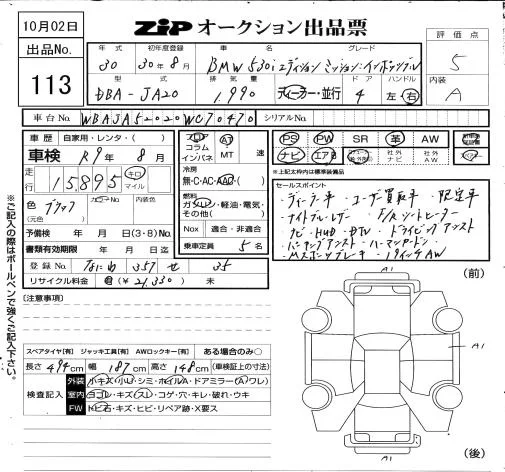 10月02日
ZiP オークション出品票
評価点
出品No.
113
年式 初年度登録 車名 グレード
30 30年8月 BMW 530i エディション ミッション:インポッシブル
5
型式 排気量 ドア ハンドル
DBA-JA20 1,990 ディーラー・並行 4 左・右
内装
A
車台No. WBAJA52020WC70470 シリアルNo.
車歴 自家用・レンタ・( )
車検 R9年8月
走行 15895 キロ マイル
色 ブラック (元色) カラーNo. 内装色
予備検 年 月 日(3・8)No.
書類有効期限 年 月 日迄
登録No. なにわ 357 せ 35
リサイクル料金 (¥21,330) 未
コラム AT
インパネ MT 速
冷房
無・C・AC・AAC( )
燃料
ガソリン・軽油・電気・
その他( )
Nox 適合・非適合
乗車定員 5名
PS PW SR 革 AW
ナビ エアB 社外ナビ 社外AW
※上記太枠内は標準装備品
セールスポイント
・ディーラー車 ・ユーザー買取車 ・限定車
・ナイトブルーレザー ・F/Rシートヒーター
・ナビ・HUD・DTV ・ドライビングアシスト
・パーキングアシスト ・ハーマンカードン
・Mスポーツブレーキ ・19インチAW
[注意事項]
スペアタイヤ[有] ジャッキ工具[有] AWロックキー[有] ある場合のみ○
長さ494cm 幅187cm 高さ148cm (車検証上の寸法)
検査記入
外装 小キズ・小U・シミ・ホイルA・ドアミラー(A・ワレ)
室内 ヨゴレ・キズ・スレ・コゲ・穴・キレ・破れ・ウキ
FW トビ石・キズ・ヒビ・リペア跡・X要ス
A1
(前)
A1
(後)
※ご記入の際はボールペンで強くご記入下さい。